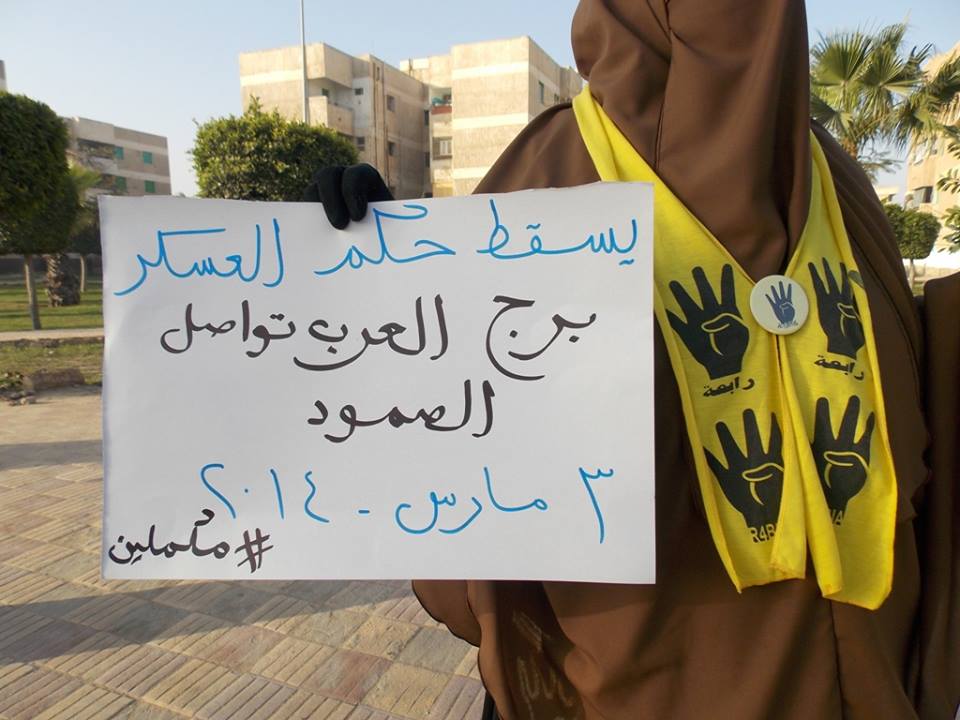 يسقط حكم العسكر
برج العرب تواصل
الصمود
٣ مارس - ٢٠١٤
#مكملين
رابعة
رابعة
R4BIA